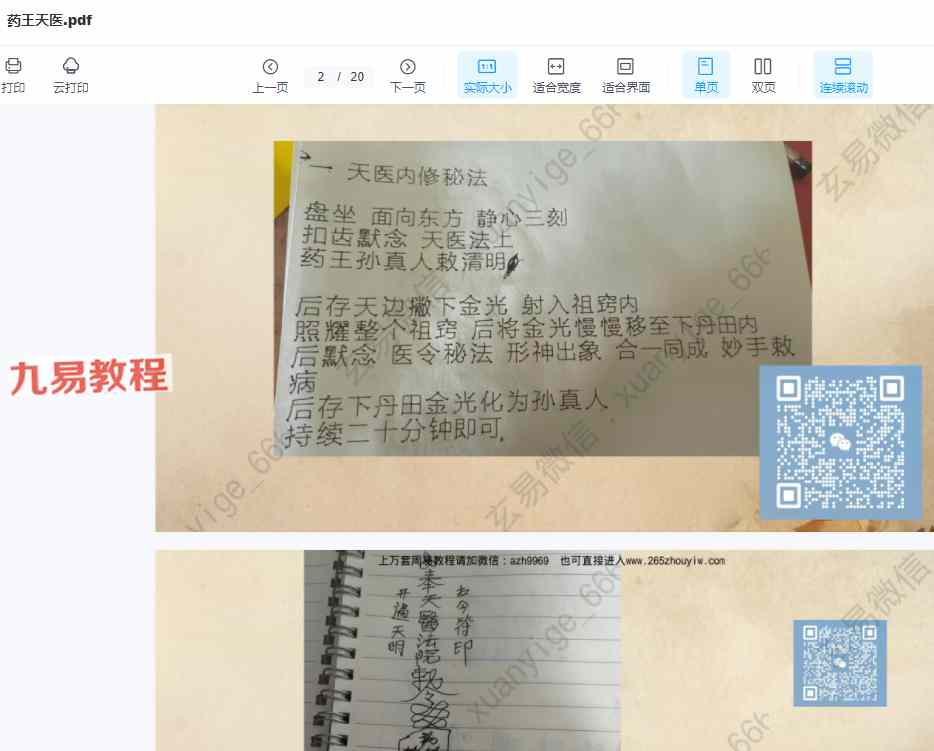 药王天医.pdf
打印
云打印
上一页
2 / 20
下一页
实际大小
适合宽度
适合界面
单页
双页
连续滚动
玄易微信
一 天医内修秘法
盘坐 面向东方 静心三刻
扣齿默念 天医法上
药王孙真人敕清明
后存天边撒下金光 射入祖窍内
照耀整个祖窍 后将金光慢慢移至下丹田内
后默念 医令秘法 形神出象 合一同成 妙手敕
病
后存下丹田金光化为孙真人
持续二十分钟即可.
九易教程
玄易微信：xuanyige_66
上万套周易教程请加微信：azh9969 也可直接进入www.265zhouyiw.com
奉天醫法院
开通天明
符印
xuanyige_66
易微信